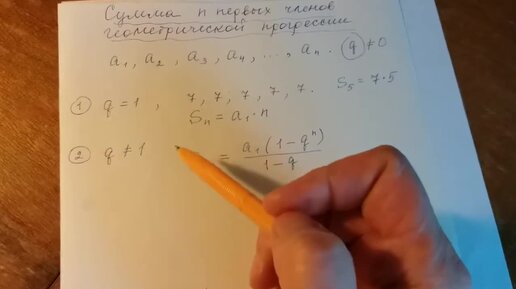 Сумма n первых членов
геометрической прогрессии
a₁, a₂, a₃, a₄, ..., aₙ. q ≠ 0
① q = 1, 7, 7, 7, 7, 7. S₅ = 7·5
Sₙ = a₁·n
② q ≠ 1 = a₁(1-qⁿ)/(1-q)